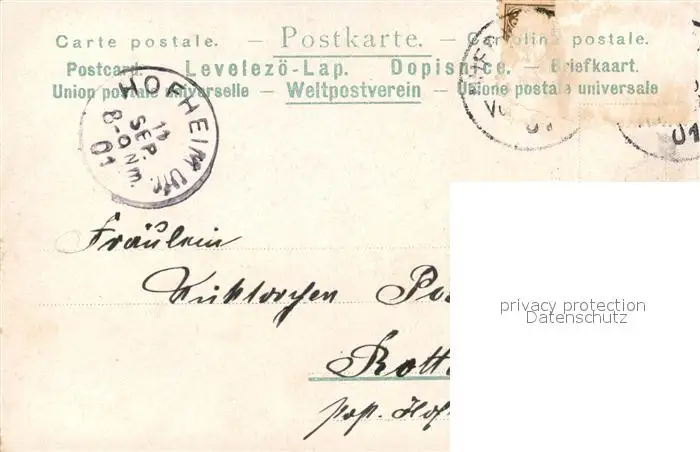 Carte postale. — Postkarte. — Cartolina postale.
Postcard. Levelezö-Lap. Dopisnice. — Briefkaart.
Union postale universelle — Weltpostverein — Unione postale universale
HOFHEIM Ufr.
11
SEP.
8-9 Nm.
01
01
01
Fräulein
Rott
privacy protection
Datenschutz